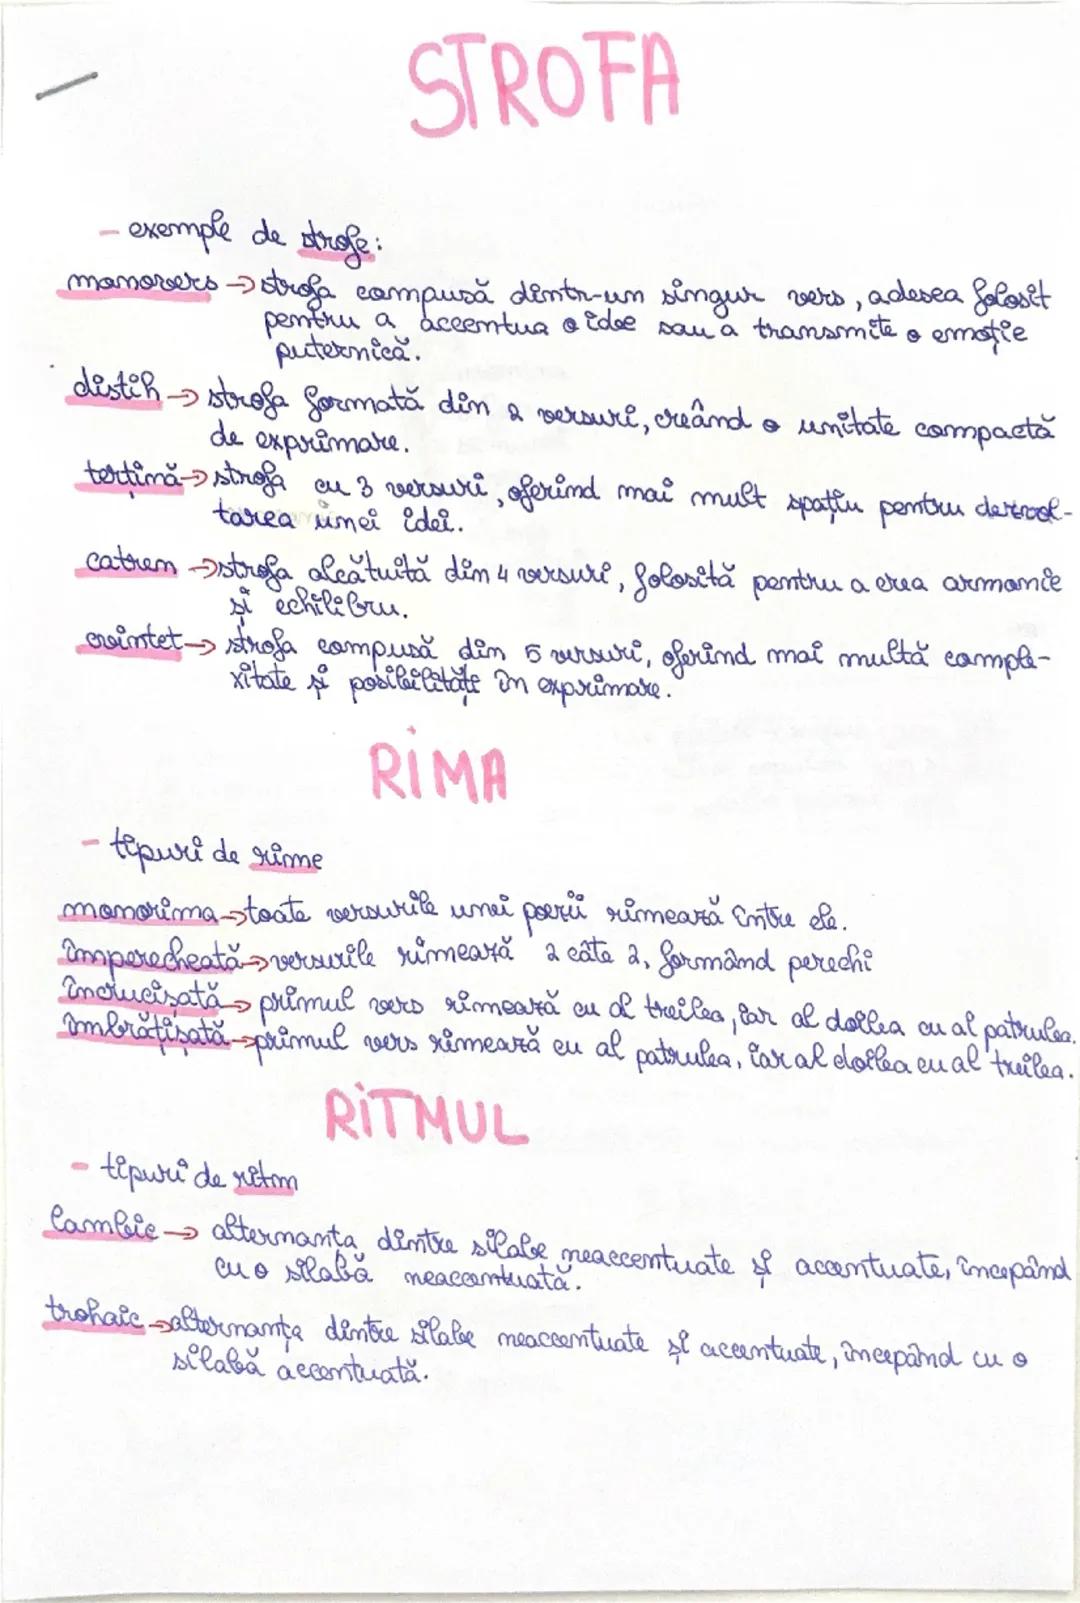 STROFA
- exemple de strofe:
monovers → strofa compusă dintr-un singur vers, adesea folosit
pentru a accentua o idee sau a transmite o emoție
puternică.
distih → strofa formată din 2 versuri, creând o unitate compactă
de exprimare.
terțină → strofa cu 3 versuri, oferind mai mult spațiu pentru dezvol-
tarea unei idei.
catren → strofa alcătuită din 4 versuri, folosită pentru a crea armonie
și echilibru.
cvintet → strofa compusă din 5 versuri, oferind mai multă comple-
xitate și posibilități în exprimare.
RIMA
- tipuri de rime
monorima → toate versurile unei poezii rimează între ele.
împerecheată → versurile rimează 2 câte 2, formând perechi
încrucișată → primul vers rimează cu al treilea, iar al doilea cu al patrulea.
îmbrățișată → primul vers rimează cu al patrulea, iar al doilea cu al treilea.
RITMUL
- tipuri de ritm
iambic → alternanța dintre silabe neaccentuate și accentuate, începând
cu o silabă neaccentuată.
trohaic → alternanța dintre silabe neaccentuate și accentuate, începând cu o
silabă accentuată.